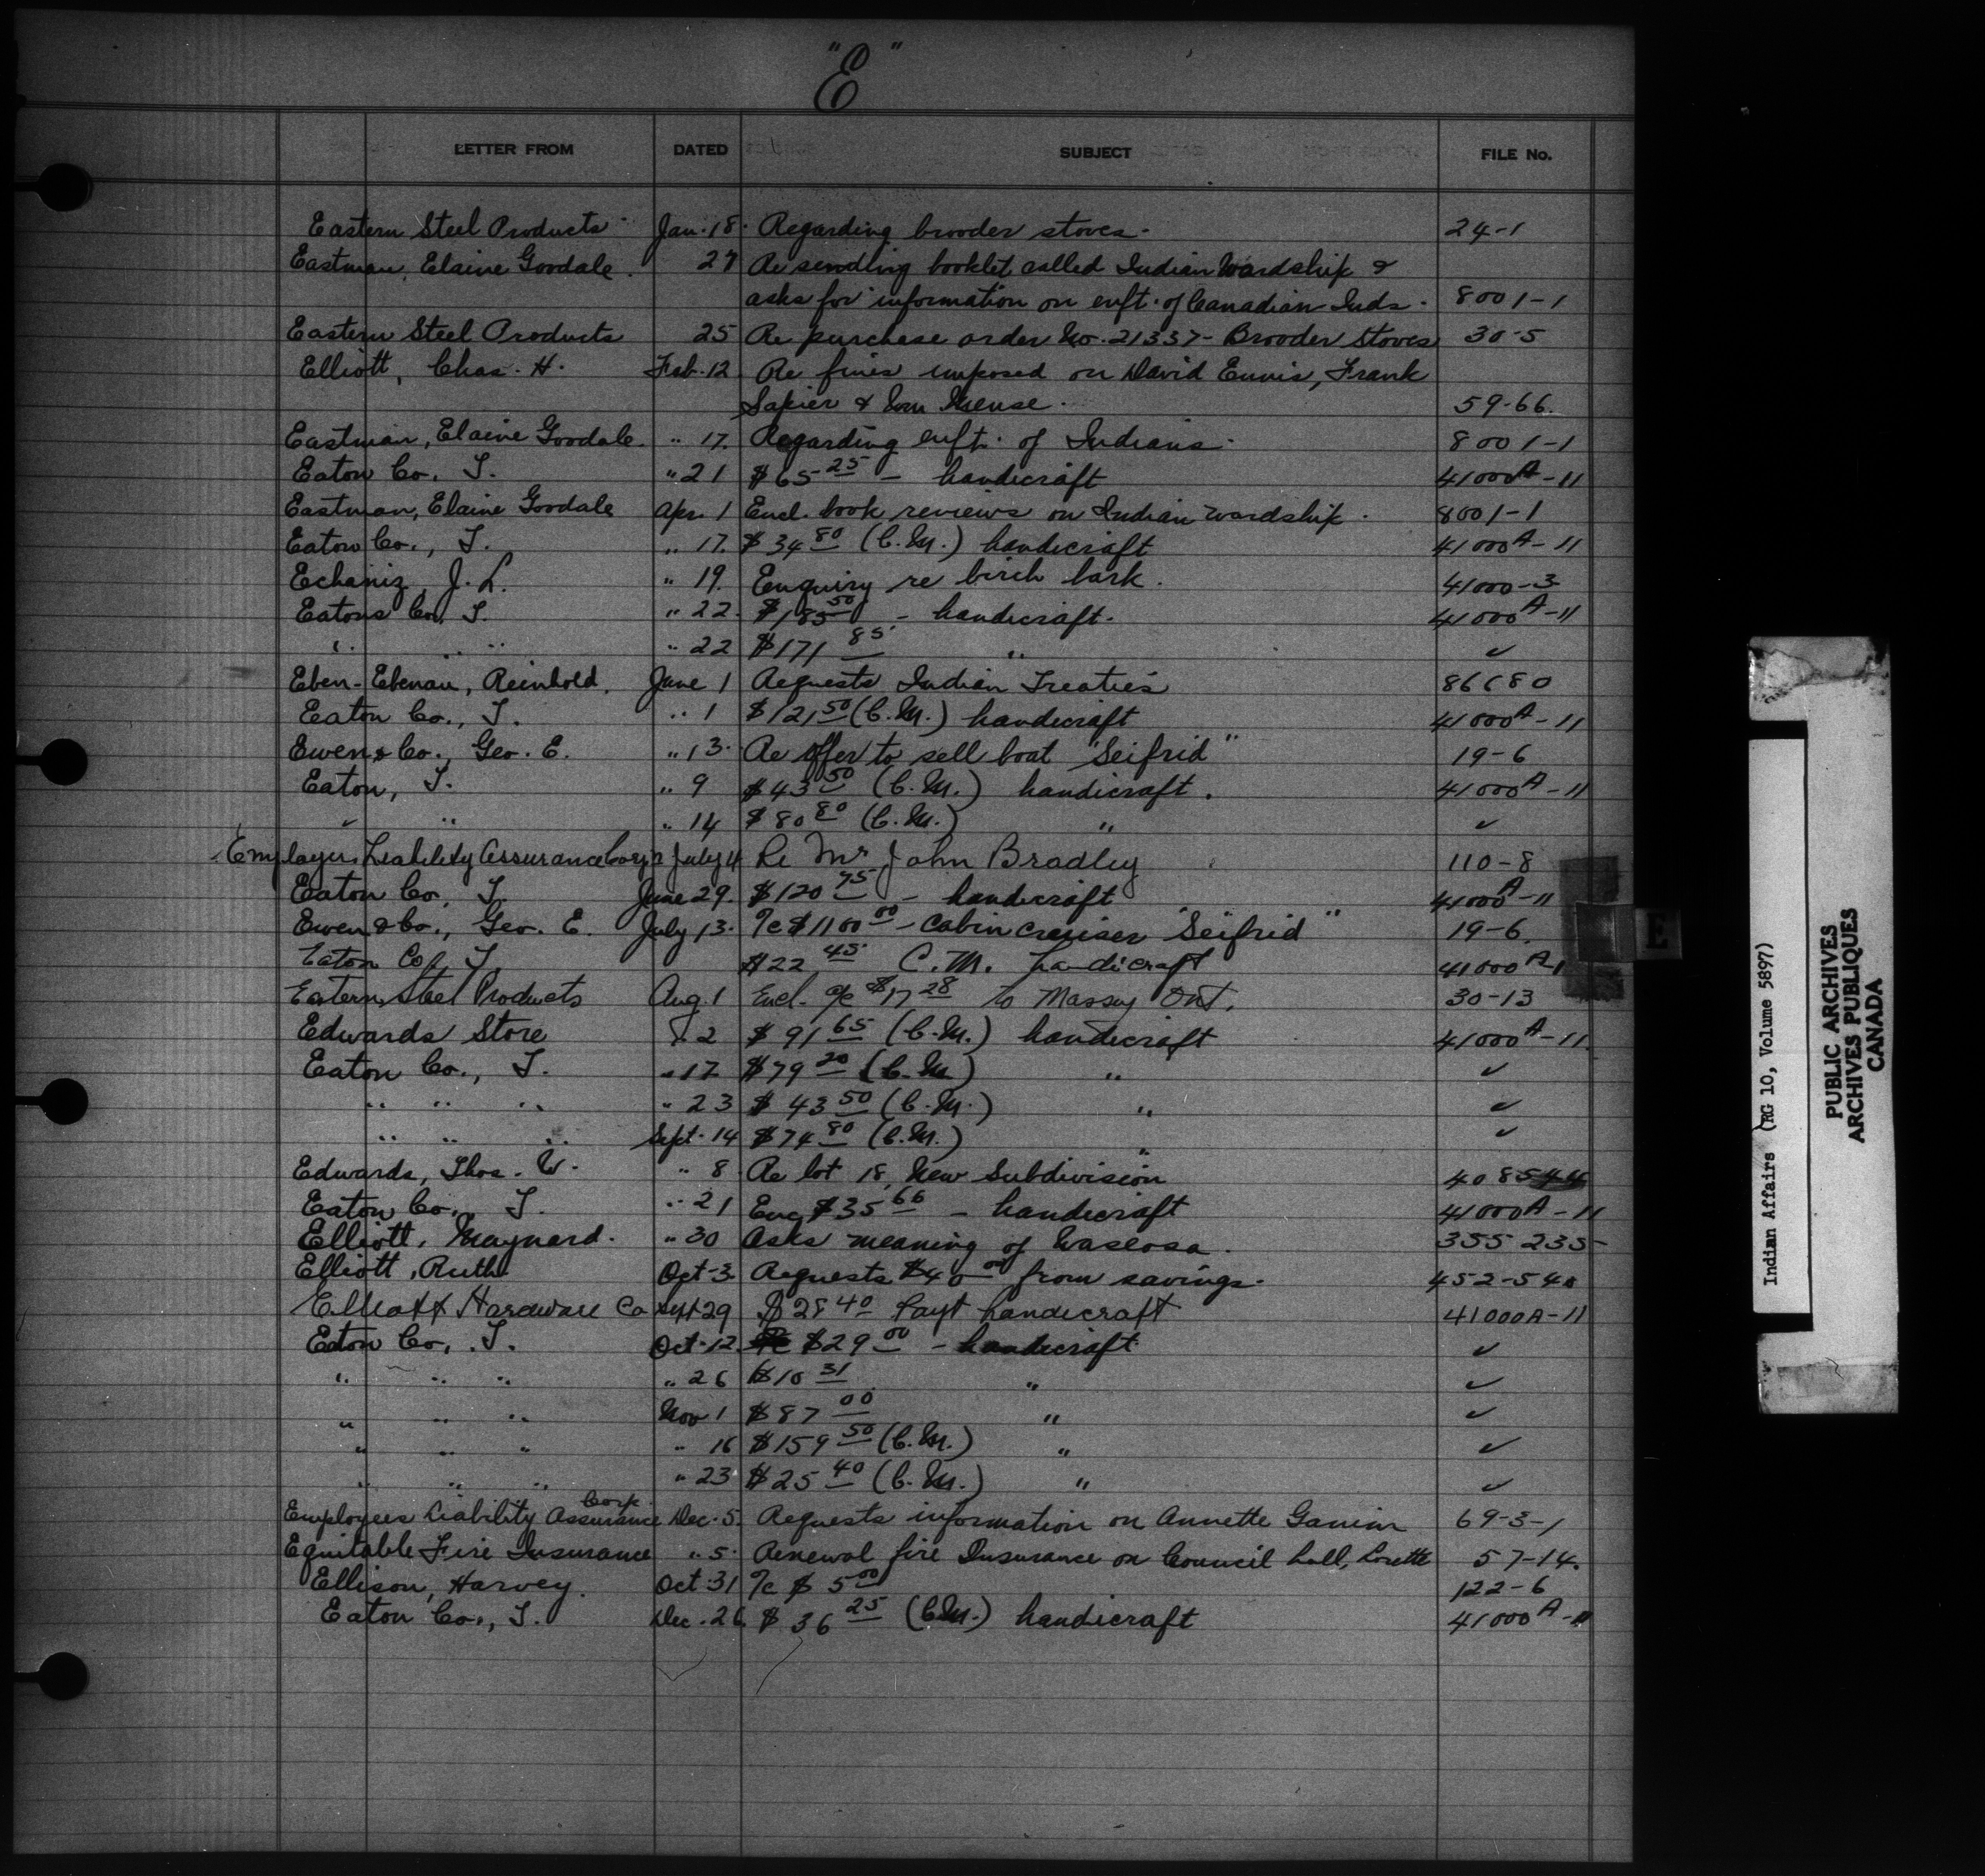 "E"
LETTER FROM DATED SUBJECT FILE No.
Eastern Steel Products Jan. 18. Regarding brooder stoves. 24-1
Eastman, Elaine Goodale. 27 Re sending booklet called Indian Wardship &
asks for information on enft. of Canadian Inds. 8001-1
Eastern Steel Products 25 Re purchase order No. 21337- Brooder Stoves 30-5
Elliott, Chas. H. Feb. 12 Re fines imposed on David Ennis, Frank
Sapier & Wm 59-66.
Eastman, Elaine Goodale. " 17. Regarding enft. of Indians. 8001-1
Eaton Co. T. " 21 $65 25 - handicraft 41000A-11
Eastman, Elaine Goodale Apr. 1 Encl. book reviews on Indian wardship. 8001-1
Eaton Co., T. " 17. $34 80 (C.M.) handicraft 41000A-11
Echaniz, J. L. " 19. Enquiry re birch bark. 41000-3
Eatons Co, T. " 22. $185 50 - handicraft. 41000A-11
" " " " 22 $171 85 " ✓
Eben-Ebenau, Reinhold. June 1 Requests Indian Treaties 86680
Eaton Co., T. " 1 $121 50 (C.M.) handicraft 41000A-11
Ewen & Co., Geo. E. " 13. Re offer to sell boat "Seifrid" 19-6
Eaton, T. " 9 $43 50 (C.M.) handicraft. 41000A-11
✓ " " 14 $80 80 (C.M.) " ✓
Employers Liability Assurance Corp'n July 4 Re Mr John Bradley 110-8
Eaton Co, T. June 29. $120 75 - handicraft 41000A-11
Ewen & Co., Geo. E. July 13. %c $1100 00 - Cabin cruiser "Seifrid" 19-6.
Eaton Co, T $22 45 C.M. handicraft 41000A-1
Eastern Steel Products Aug. 1 Encl. %c $17 28 to Massey Ont. 30-13
Edwards Store " 2 $91 65 (C.M.) handicraft 41000A-11.
Eaton Co., T. " 17 $79 20 (C.M.) " ✓
" " " " 23 $43 50 (C.M.) " ✓
" " " Sept. 14 $74 80 (C.M.) " ✓
Edwards, Thos. W. " 8. Re lot 18, New Subdivision 408544
Eaton Co., T. " 21 Enc $35 66 - handicraft 41000A-11
Elliott, Maynard. " 30 Asks meaning of Waseosa. 355 235-
Elliott, Ruth Oct. 3 Requests $40 00 from savings. 452-54
Elliott Hardware Co Sept 29 $28 40 Payt handicraft 41000A-11
Eaton Co., T. Oct. 12. $29 00 - handicraft. ✓
" " " " 26 $10 31 " ✓
" " " Nov 1 $87 00 " ✓
" " " " 16 $159 50 (C.M.) " ✓
" " " " 23 $25 40 (C.M.) " ✓
Employees Liability Assurance Corp. Dec. 5. Requests information on Annette 69-3-1
Equitable Fire Insurance " 5. Renewal fire Insurance on Council hall, Lorette 57-14.
Ellison, Harvey. Oct. 31 %c $5 00 122-6
Eaton Co., T. Dec. 26. $36 25 (C.M.) handicraft 41000A-11
E
Indian Affairs (RG 10, Volume 5897)
PUBLIC ARCHIVES
ARCHIVES PUBLIQUES
CANADA